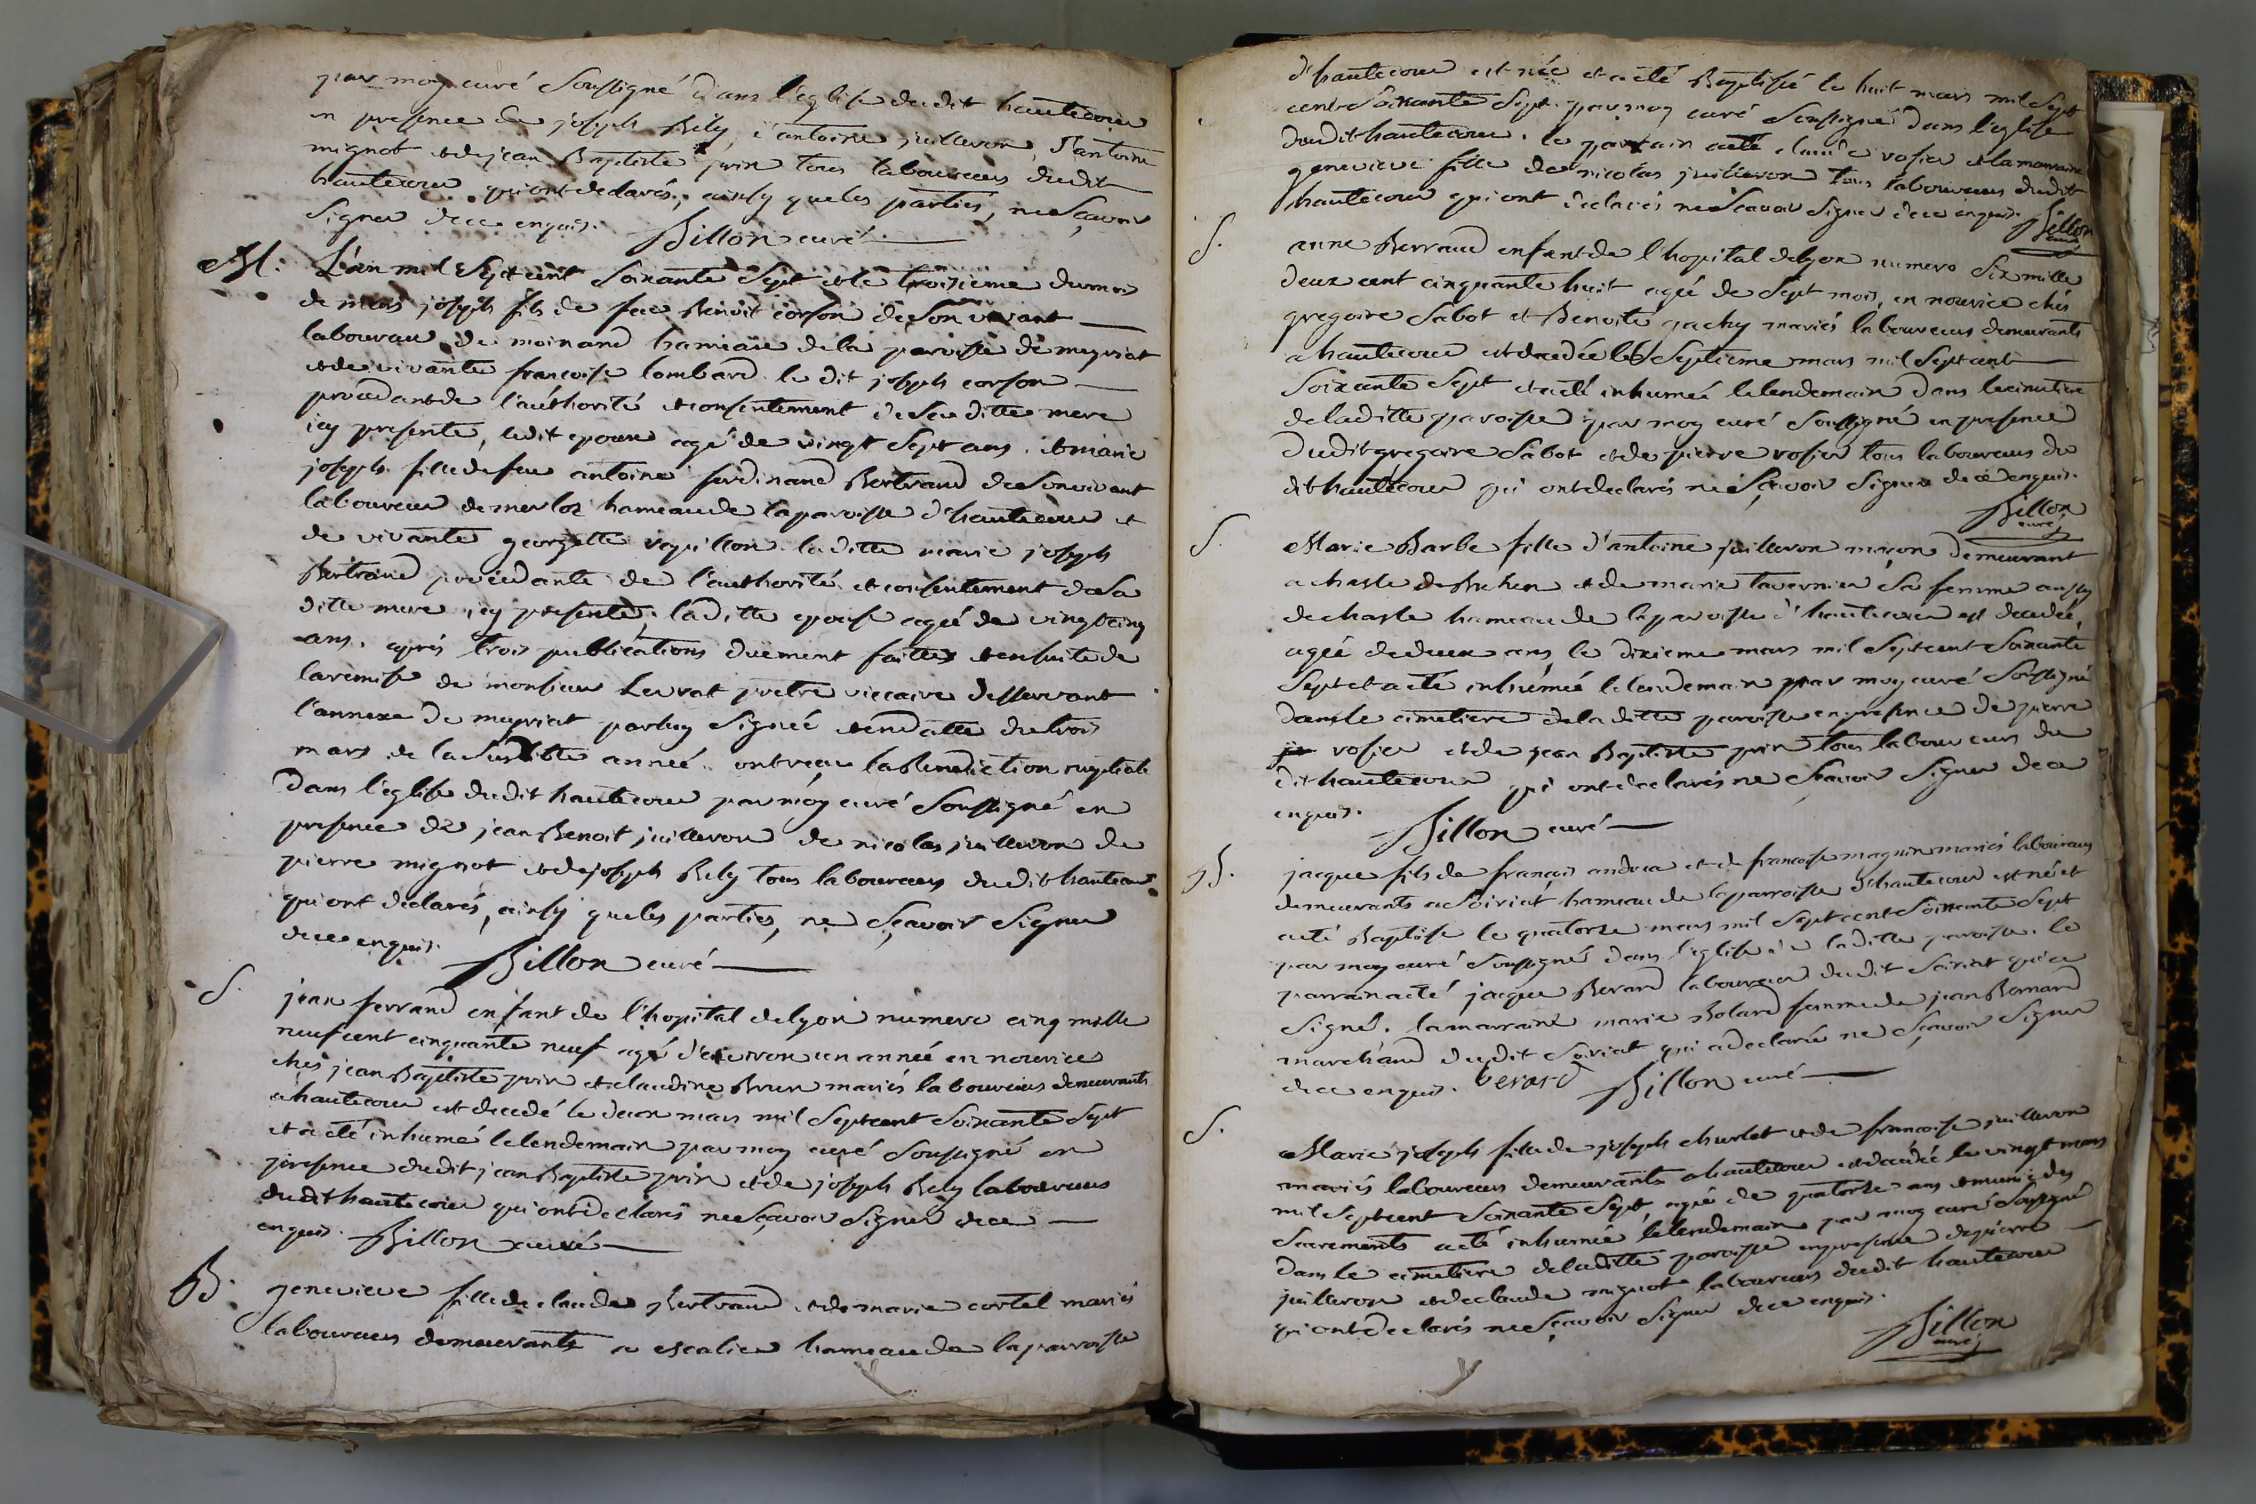 par moy curé Soussigné dans l'eglise dudit hautecour
en presence de joseph Bély, d'antoine juilleron, d'antoine
mignot et de jean Baptiste prin tous laboureurs dudit
hautecour qui ont declarés, ainsy que les parties, ne Sçavoir
Signer de ce enquis. Billon curé
M. L'an mil Sept cent Soixante Sept et le troisieme du mois
de mars joseph fils de feu Benoit corson de Son vivant
laboureur de moinand hameau de la paroisse de meyriat
et de vivante francoise lombard le dit joseph corson
procedant de l'authorité et consentement de Sa ditte mere
icy presente, ledit epoux agé de vingt Sept ans. et marie
joseph fille de feu antoine ferdinand Bertrand de Son vivant
laboureur de merloz hameau de la paroisse d'hautecour et
de vivante georgette laditte marie joseph
Bertrand procedante de l'authorité et consentement de Sa
ditte mere, icy presente. laditte epouse agée de vingt cinq
ans. aprés trois publications duëment faittes et ensuite de
la remise de monsieur Levrat prêtre viccaire desservant
l'annexe de meyriat par luy Signée et en datte du trois
mars de la Susditte année. ont reçu la Benediction nuptiale
dans l'eglise dudit hautecour par moy curé Soussigné en
presence de jean Benoit juilleron de nicolas juilleron de
pierre mignot et de joseph Bely tous laboureurs dudit hautecour
qui ont declarés, ainsy que les parties, ne Sçavoir Signer
de ce enquis. Billon curé
S. jean ferrand enfant de l'hopital de lyon numero cinq mille
neuf cent cinquante neuf agé d'environ un année en nourice
chés jean Baptiste prin et claudine Brun mariés laboureurs demeurants
a hautecour est decedé le deux mars mil Sept cent Soixante Sept
et a été inhumé le lendemain par moy curé Soussigné en
presence dudit jean Baptiste prin et de joseph Bely laboureurs
dudit hautecour qui ont declarés ne Sçavoir Signer de ce
enquis. Billon curé
B. genevieve fille de claude Bertrand et de marie cortel mariés
laboureurs demeurants a escalier hameau de la paroisse
d'hautecour est née et a été Baptisée le huit mars mil Sept
cent Soixante Sept par moy curé Soussigné dans l'eglise
dudit hautecour. le parrain a été claude rosier et la marraine
genevieve fille de nicolas juilleron tous laboureurs dudit
hautecour qui ont declarés ne Scavoir Signer de ce enquis. Billon
curé
S. anne Berraud enfant de l'hopital de lyon numero Six mille
deux cent cinquante huit agée de Sept mois, en nourice chés
gregoire Sabot et Benoite pachy mariés laboureurs demeurants
a hautecour est decedée le Septieme mars mil Sept cent
Soixante Sept et a été inhumée le lendemain dans le cimetiere
de laditte paroisse par moy curé Soussigné en presence
dudit gregoire Sabot et de pierre rosier tous laboureurs du
dit hautecour qui ont declarés ne Sçavoir Signer de ce enquis.
Billon
curé
S. Marie Barbe fille d'antoine juilleron maçon demeurant
a chasle de Bohan et de marie tavernier Sa femme aussy
de chasle hameau de la paroisse d'hautecour est decedée,
agée de deux ans le dixieme mars mil Sept cent Soixante
Sept et a été inhumée le lendemain par moy curé Soussigné
dans le cimetiere de laditte paroisse en presence de pierre
rosier et de jean Baptiste prin tous laboureurs du
dit hautecour qui ont declarés ne Sçavoir Signer de ce
enquis. Billon curé
B. jacque fils de françois andrea et de francoise magnin mariés laboureurs
demeurants a Soiriat hameau de la parroisse d'hautecour est né et
a été Baptisé le quatorze mars mil Sept cent Soixante Sept
par moy curé Soussigné dans l'eglise de laditte paroisse. le
parrain a été jacque Berard laboureur dudit Soiriat qui a
Signé. la marraine marie Bolard femme de jean Bernard
marchand dudit Soiriat qui a declarée ne Sçavoir Signer
de ce enquis. berard Billon curé
S. Marie joseph fille de joseph churlet et de francoise juilleron
mariés laboureurs demeurants a hautecour est decedée le vingt mars
mil Sept cent Soixante Sept, agée de quatorze ans et munie des
Sacrements a été inhumée le lendemain par moy curé Soussigné
dans le cimetiere de laditte paroisse en presence de pierre
juilleron et de claude mignot laboureurs dudit hautecour
qui ont declarés ne Sçavoir Signer de ce enquis.
Billon
curé